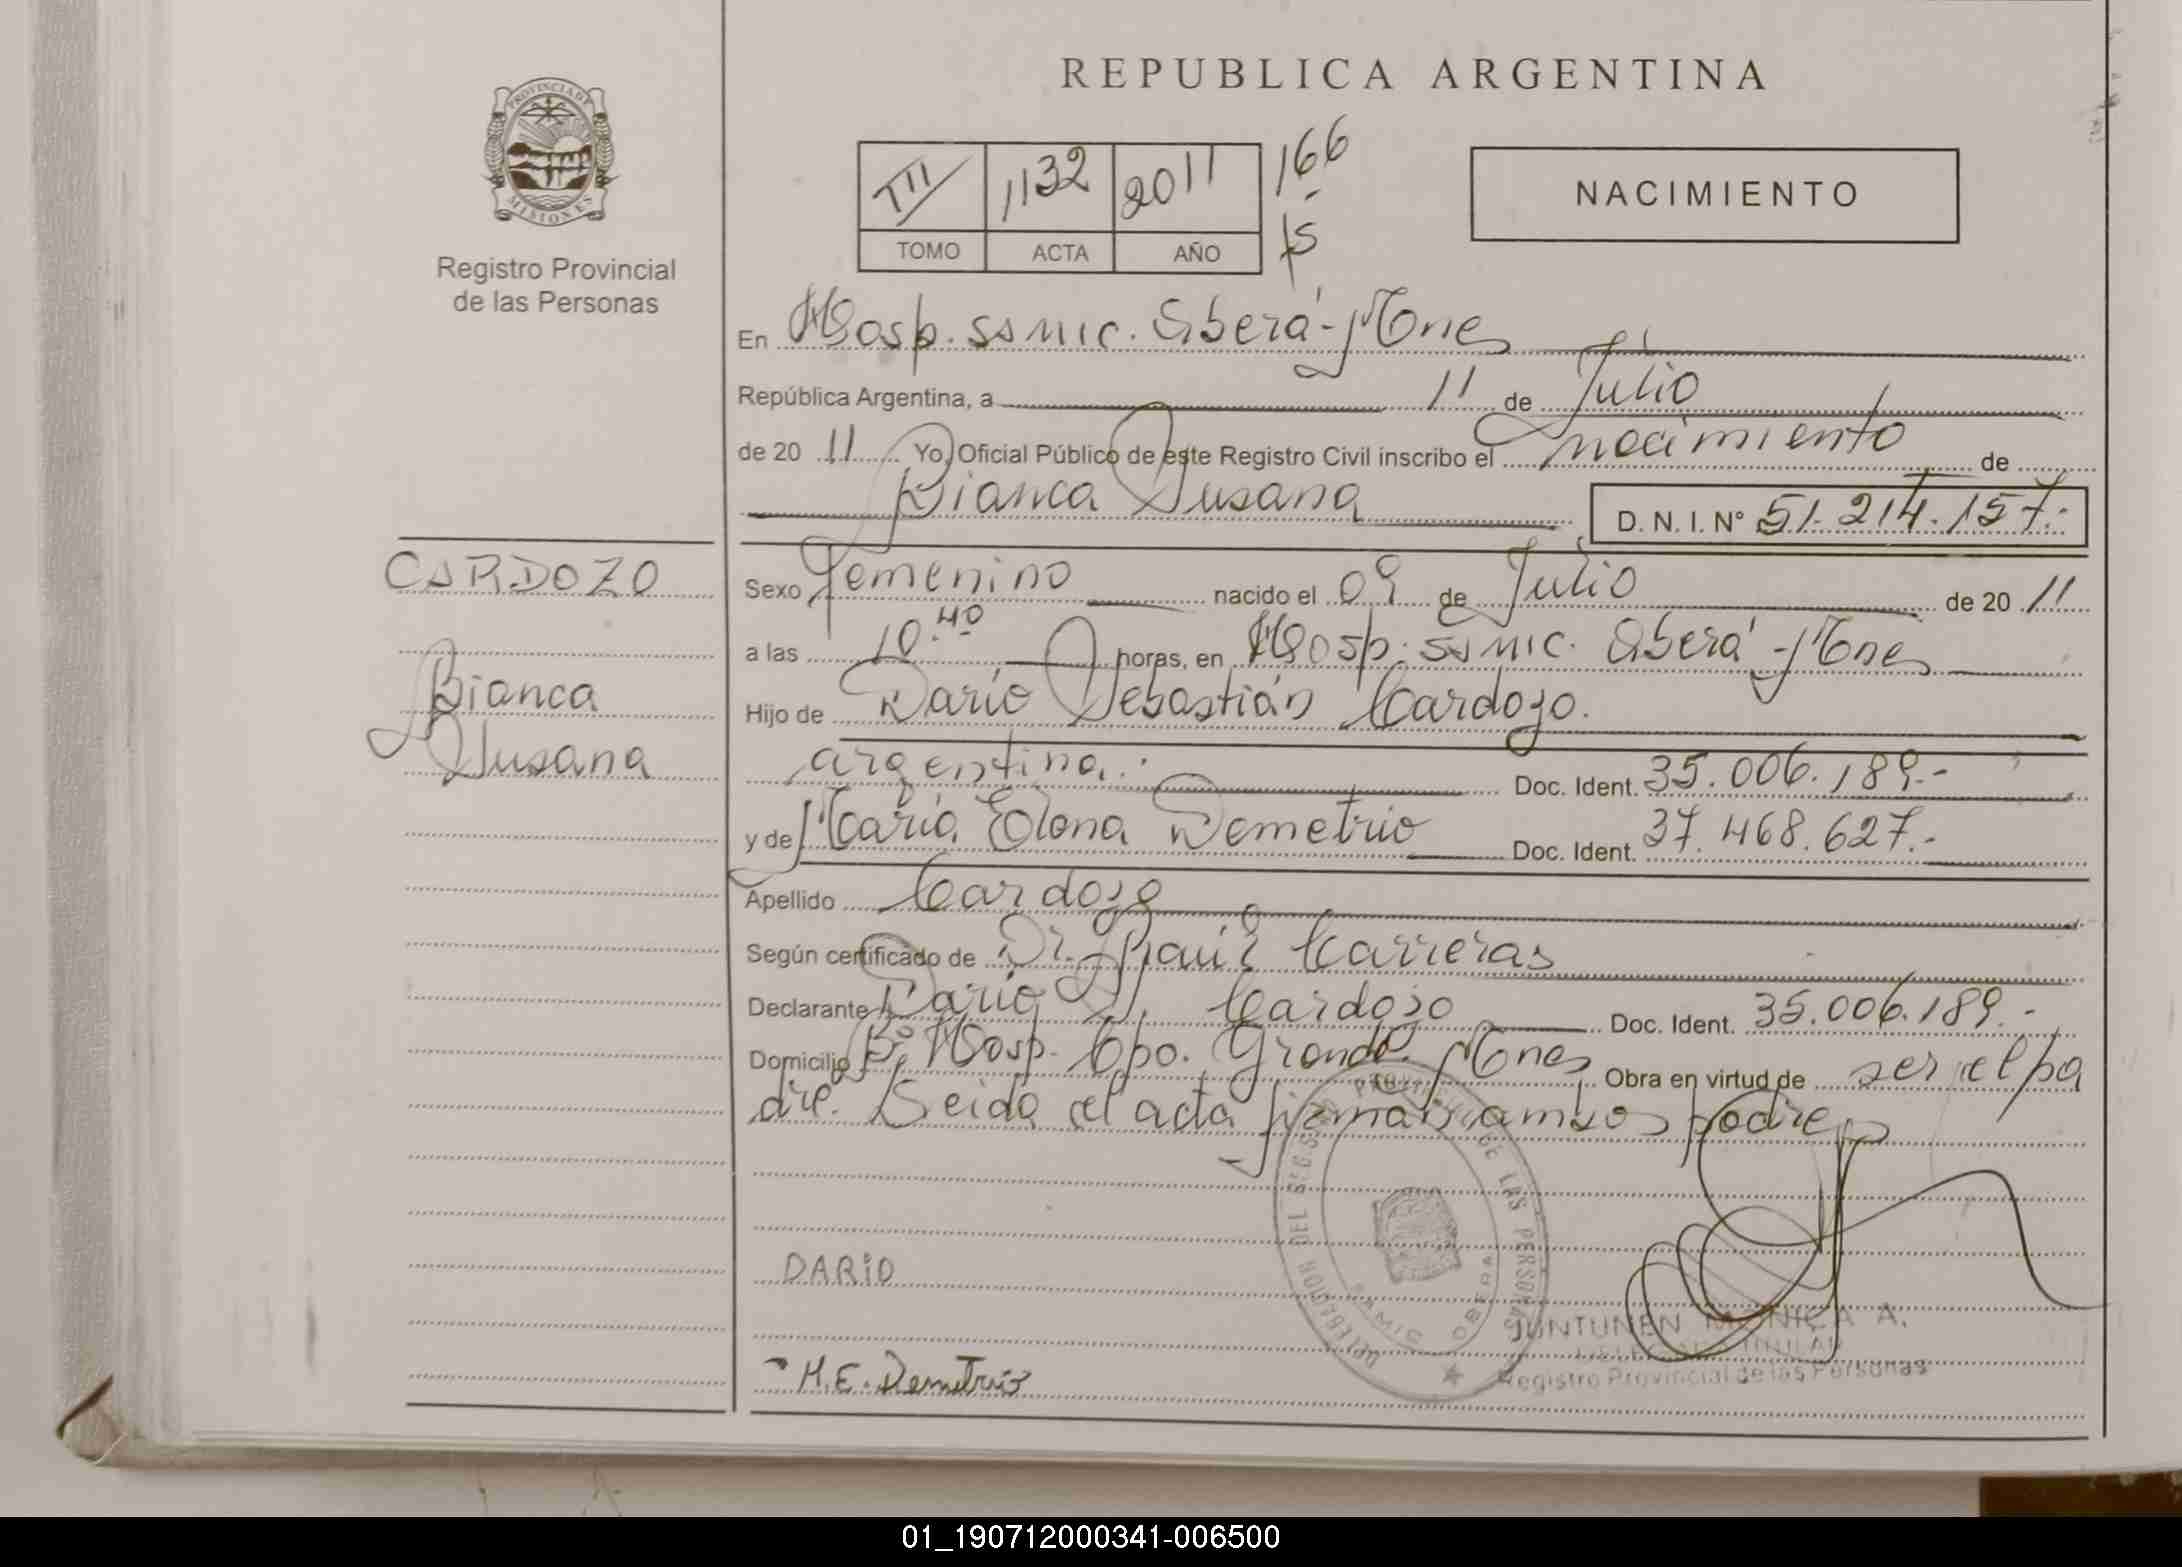 REPUBLICA ARGENTINA
PROVINCIA DE
MISIONES
Registro Provincial
de las Personas
TIII 1132 2011 166
TOMO ACTA AÑO
NACIMIENTO
En Hosp. SAMIC. Oberá - Mnes
República Argentina, a 11 de Julio
de 20 11 Yo, Oficial Público de este Registro Civil inscribo el nacimiento de
Bianca Susana D. N. I. Nº 51.214.157.-
CARDOZO
Bianca
Susana
Sexo femenino nacido el 09 de Julio de 20 11
a las 10.40 horas, en Hosp. SAMIC. Oberá - Mnes
Hijo de Darío Sebastián Cardozo.
argentina. Doc. Ident. 35.006.189.-
y de María Elena Demetrio Doc. Ident. 37.468.627.-
Apellido Cardozo
Según certificado de Dr. Raúl Carreras
Declarante Darío S. Cardozo Doc. Ident. 35.006.189.-
Domicilio Bº Hosp. Cpo. Grande. Mnes Obra en virtud de ser el pa
dre. Leída el acta firman ambos padres
DELEGACION DEL REG. PROVINCIAL DE LAS PERSONAS
SAMIC OBERA
DARIO
JUNTUNEN MONICA A.
DELEGADA TITULAR
Registro Provincial de las Personas
M.E. Demetrio
01_190712000341-006500